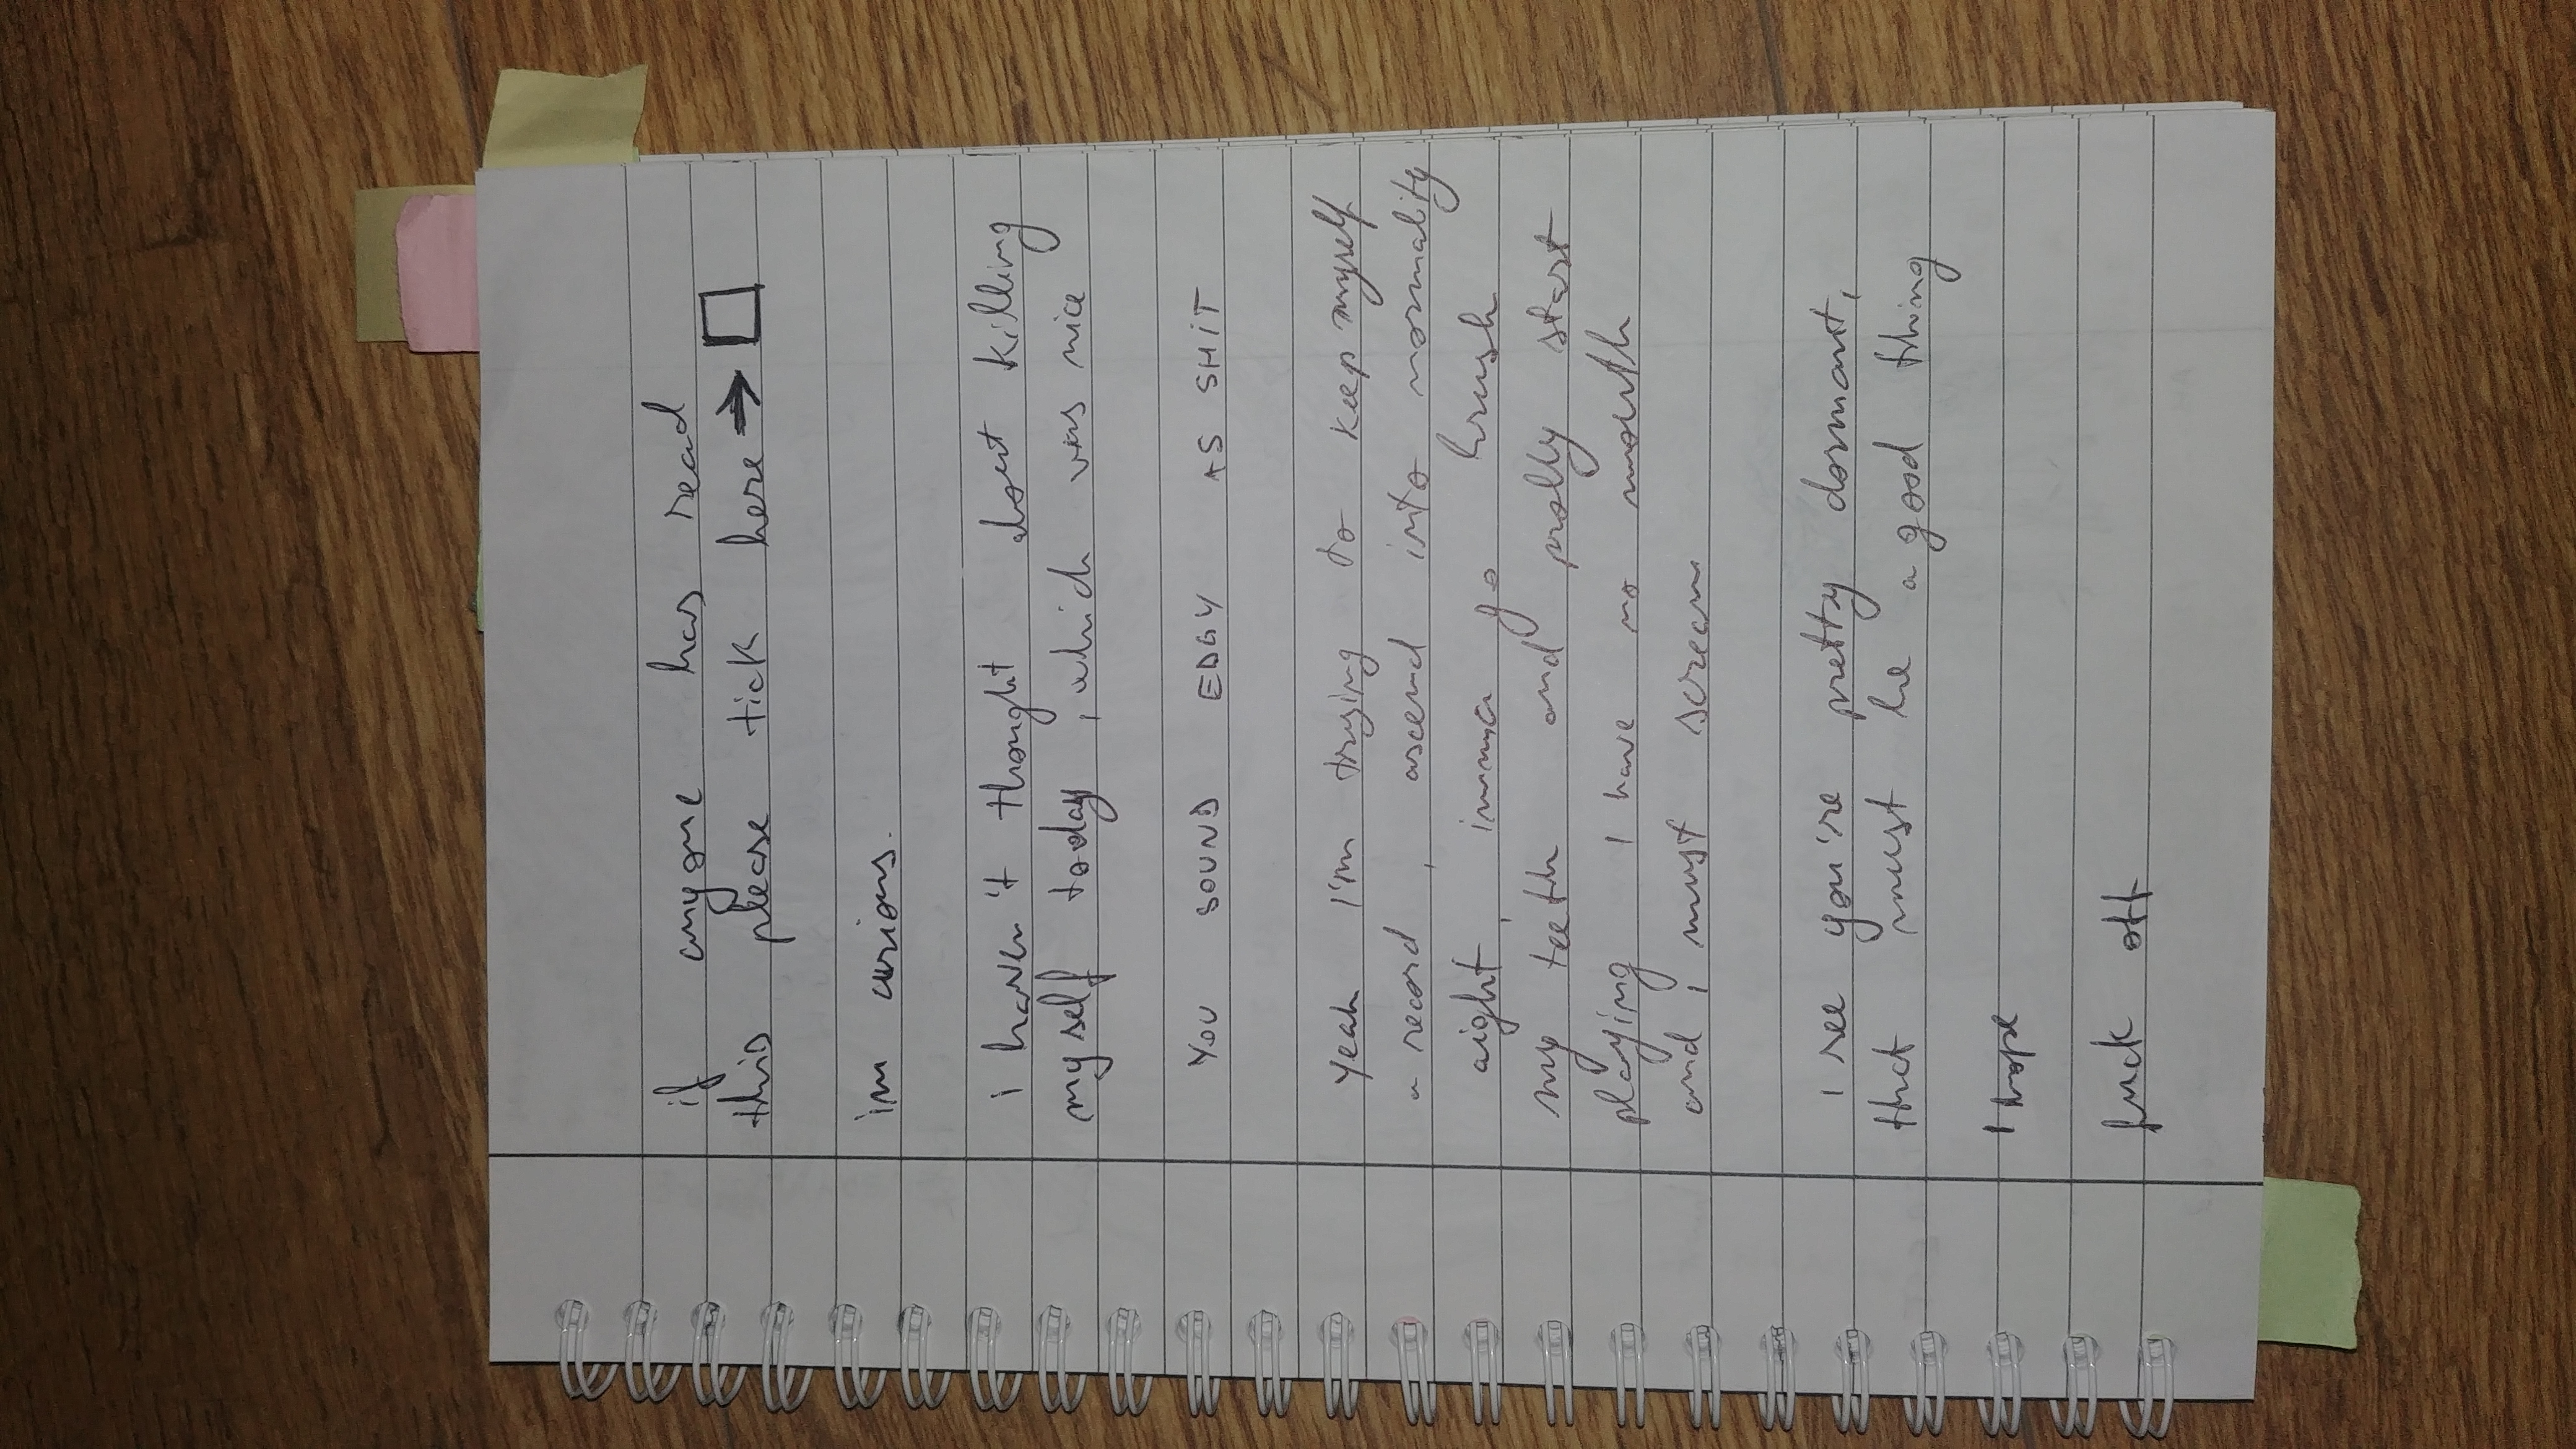 if anyone has read
this please tick here → ☐
im curious.
i haven't thought about killing
myself today, which was nice
YOU SOUND EDGY AS SHIT
Yeah I'm trying to keep myself
a record, ascend into normality
aight, imma go brush
my teeth and prolly start
playing I have no mouth
and i must scream
I see you're pretty dormant,
that must be a good thing
I hope
fuck off